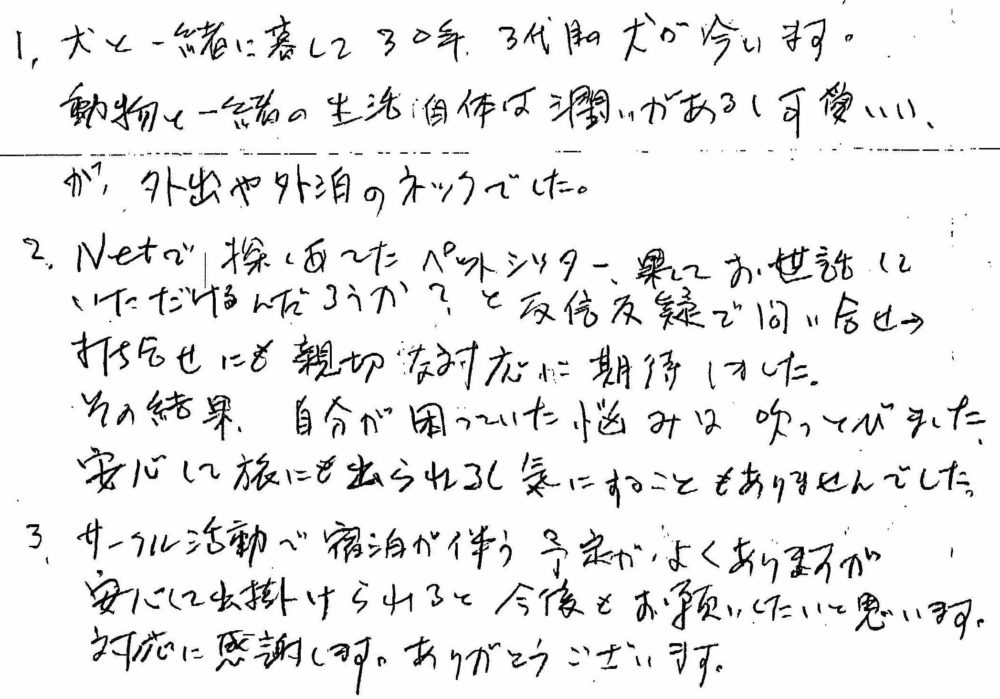 1, 犬と一緒に暮して30年、3代目の犬が今います。
動物と一緒の生活自体は潤いがあるし可愛いい、
が、外出や外泊のネックでした。
2、Netで探しあてたペットシッター、果してお世話して
いただけるんだろうか？と反信反疑で問い合せ→
打ち合せにも親切な対応に期待しました。
その結果、自分が困っていた悩みは吹っとびました、
安心して旅にも出られるし気にすることもありませんでした。
3、サークル活動で宿泊が伴う予定がよくありますが
安心して出掛けられると今後もお願いしたいと思います。
対応に感謝します。ありがとうございます。